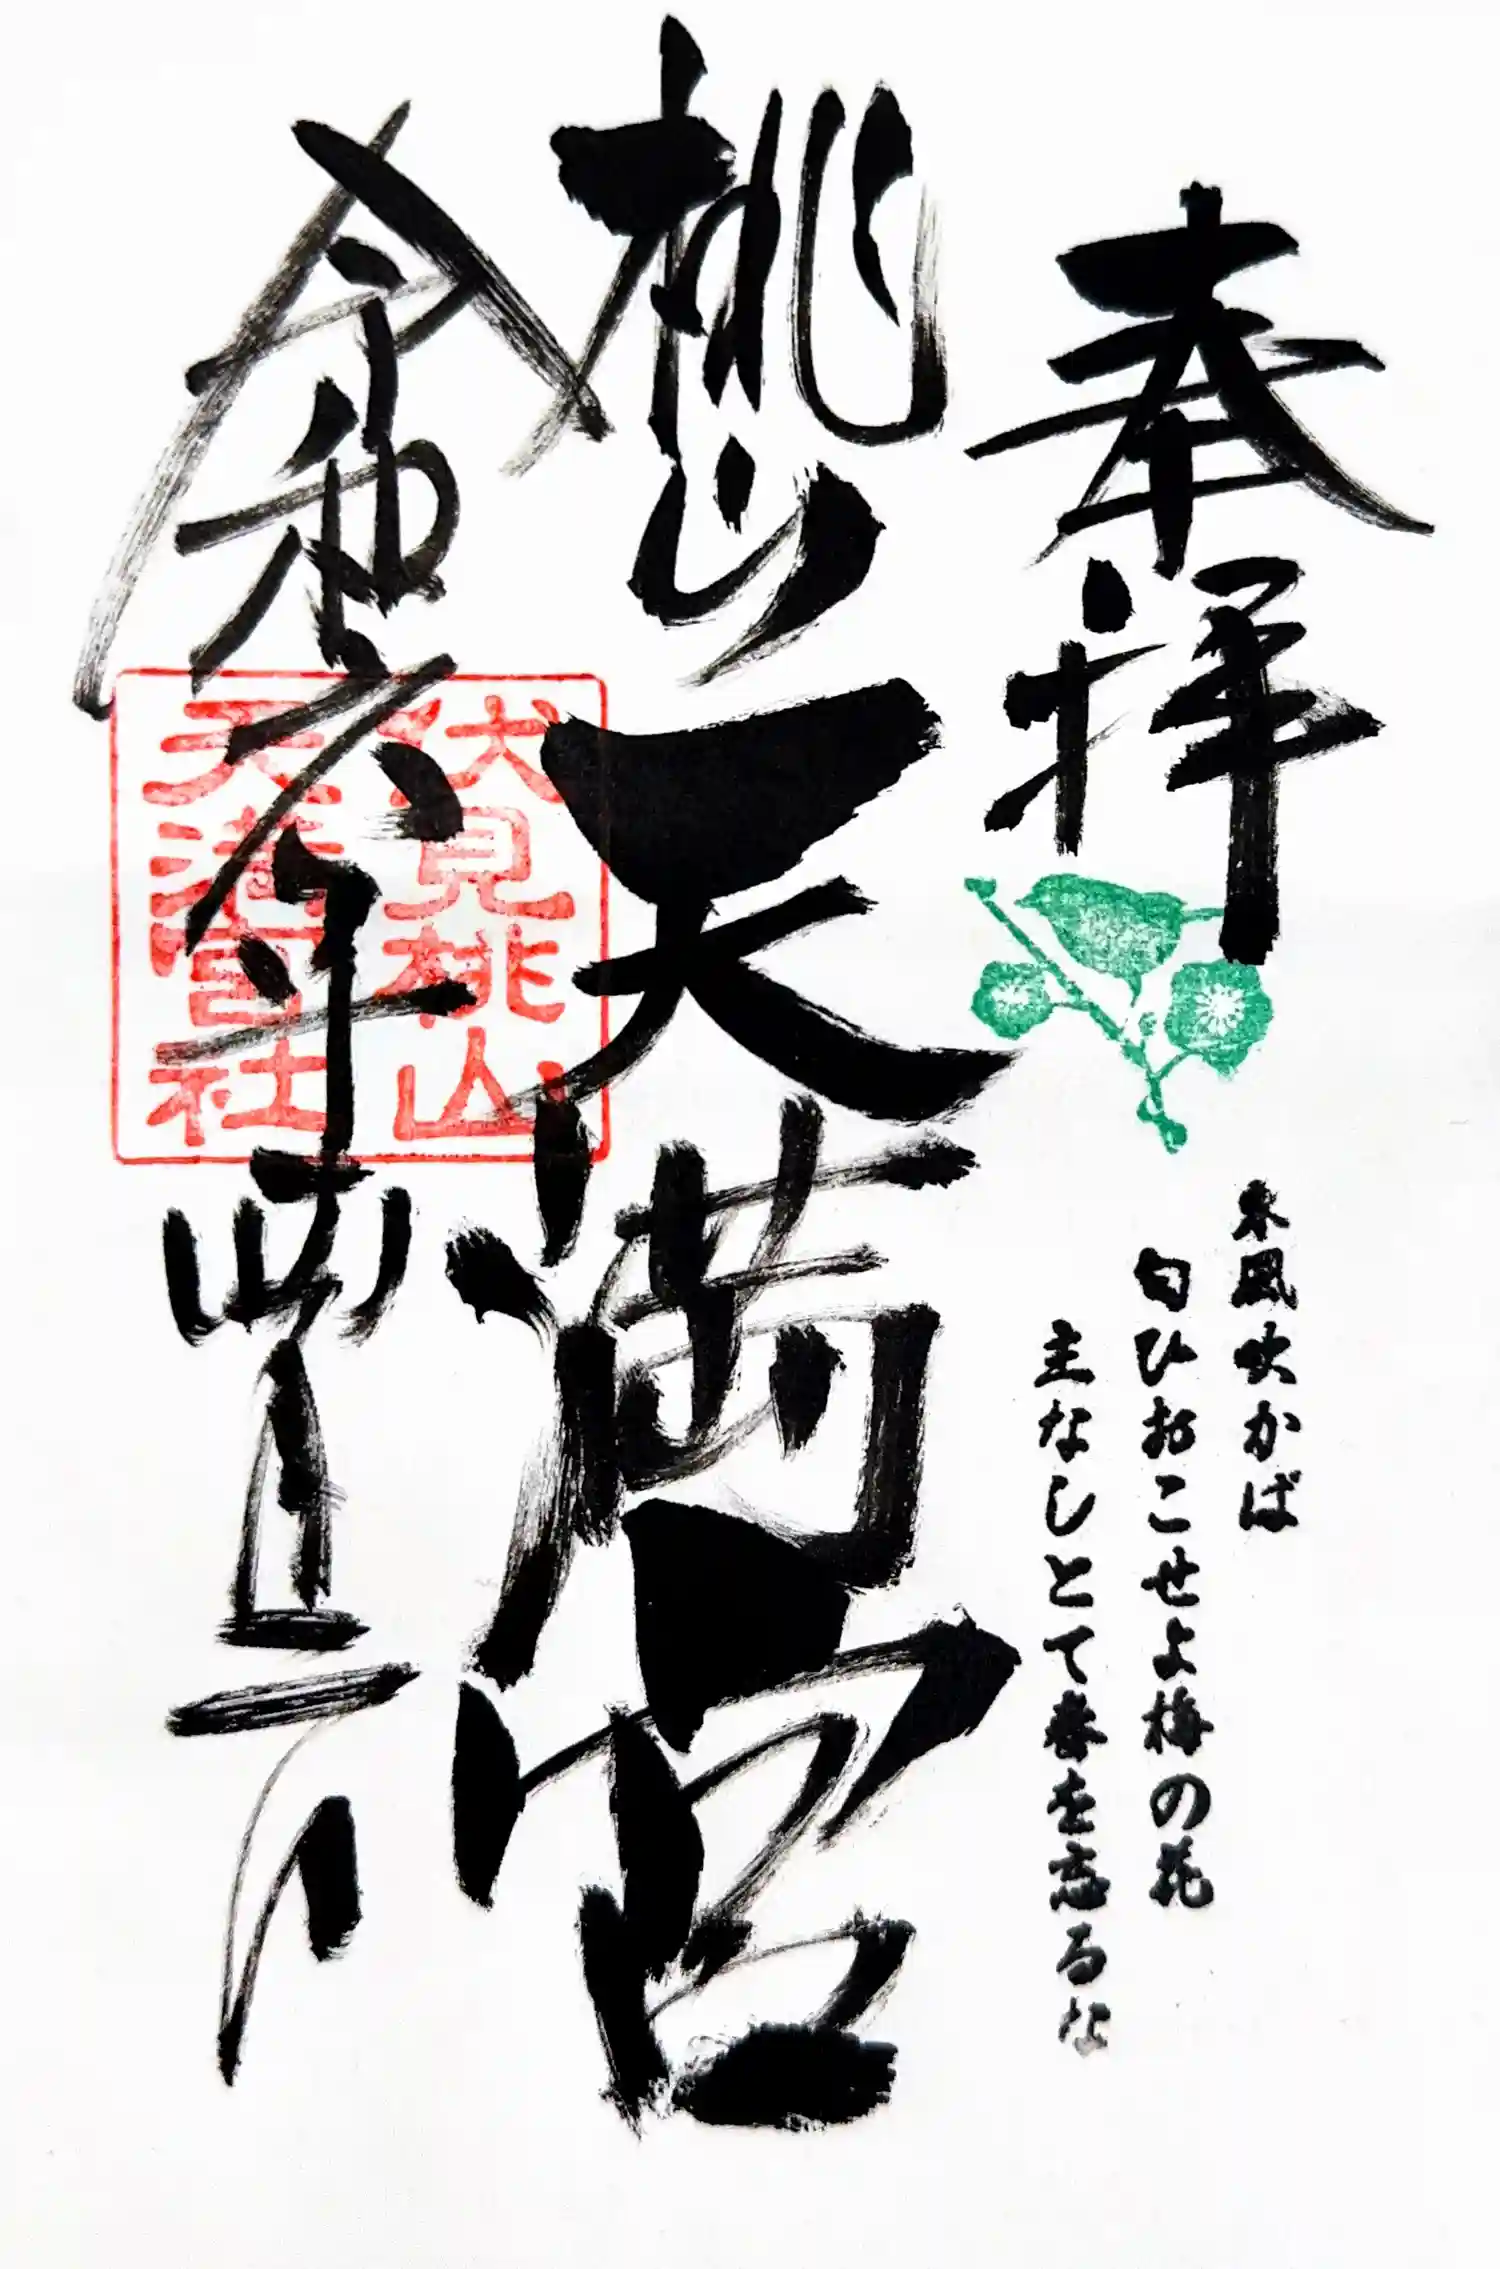 奉拝
東風吹かば
匂ひおこせよ梅の花
主なしとて春を忘るな
桃山天満宮
令和六年
伏見桃山
天満宮社